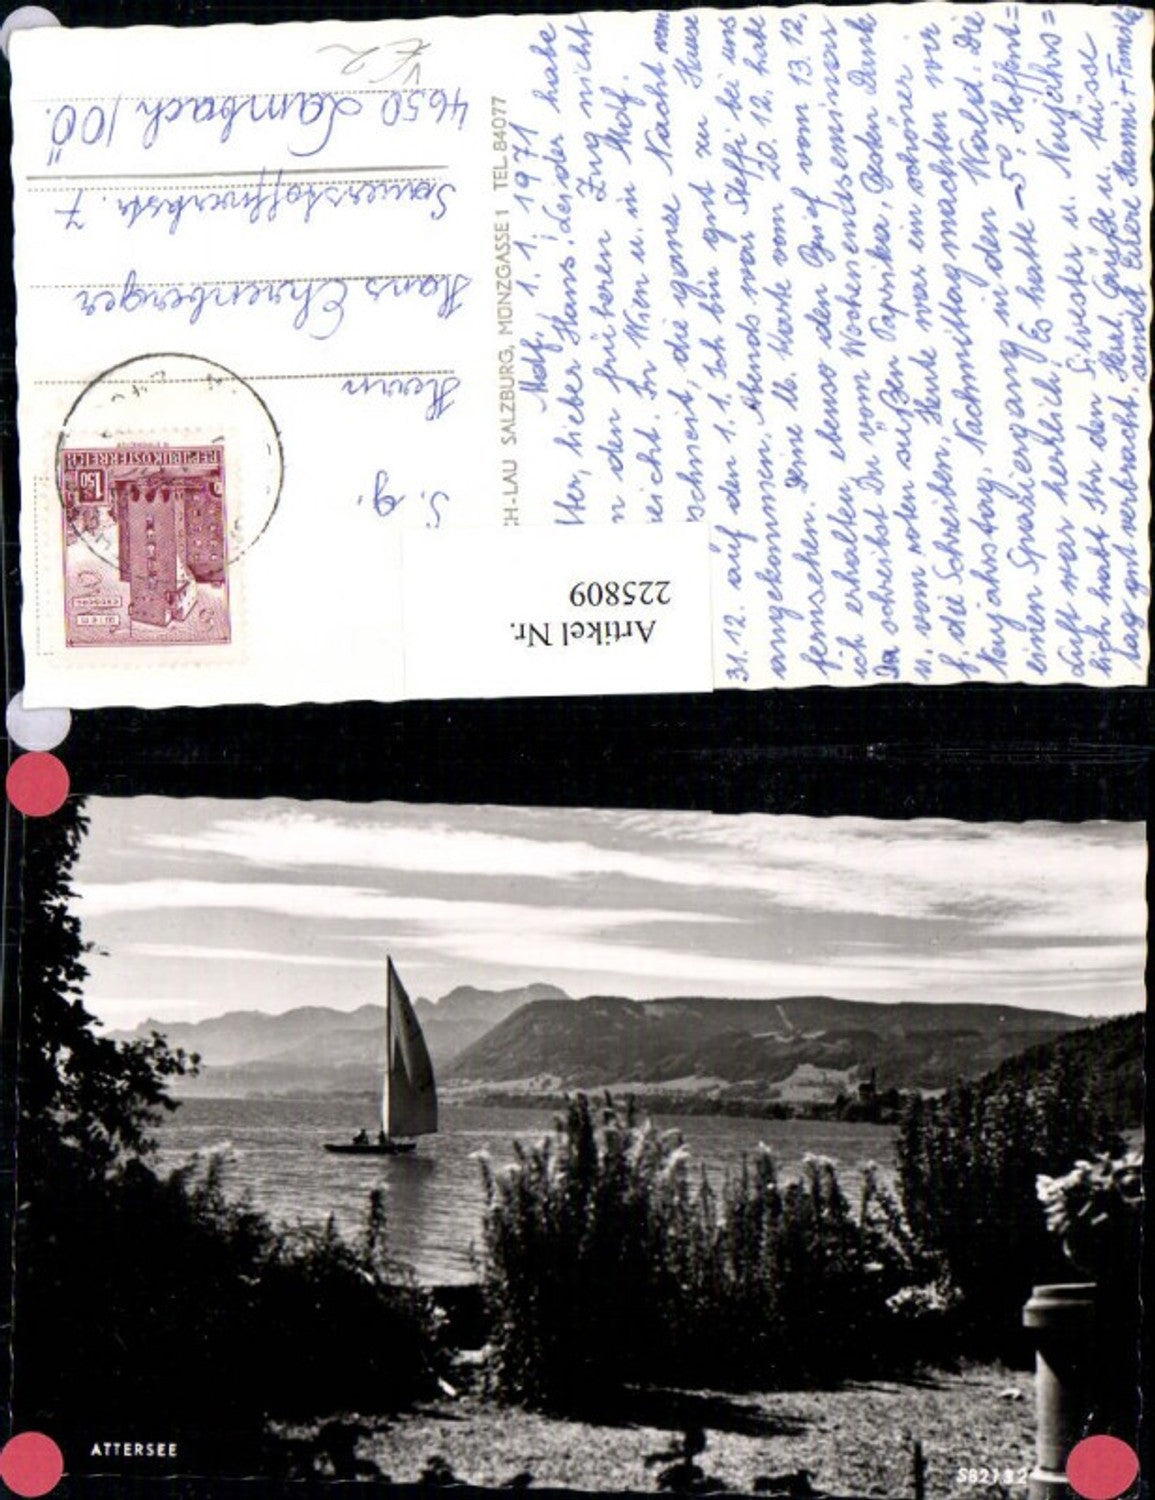 V
£2
S. g.
Herrn
Hans Ehrenberger
Sauerstoffwerkstr. 7
4650 Lambach / OÖ.
REPUBLIK ÖSTERREICH
1.50
WIEN
CH-LAU SALZBURG, MÜNZGASSE 1 TEL. 84077
Mdf, 1. 1. 1971
lieber Hans! Leider habe
n den früheren Zug nicht
eicht. In Wien u. in Mdf.
schneit, die ganze Nacht vom
31.12. auf den 1. 1. Ich bin gut zu Hause
angekommen. Abends war Steffi bei uns
fernsehen. Deine lb. Karte vom 20. 12. habe
ich erhalten, ebenso den Brief vom 13. 12.
Du schreibst Du vom Wochenendseminar
u. vom roten süßen Paprika, Besten Dank
f. die Schreiben. Heute war ein schöner
Neujahrstag, Nachmittag machten wir
einen Spaziergang in den Wald. Die
Luft war herrlich, Es hatte -5°, Hoffent=
lich habt Ihr den Silvester u. Neujahrs=
tag gut verbracht, Herzl. Grüße u. Küsse
sendet Euere Mammi + Familie
Artikel Nr.
225809
ATTERSEE